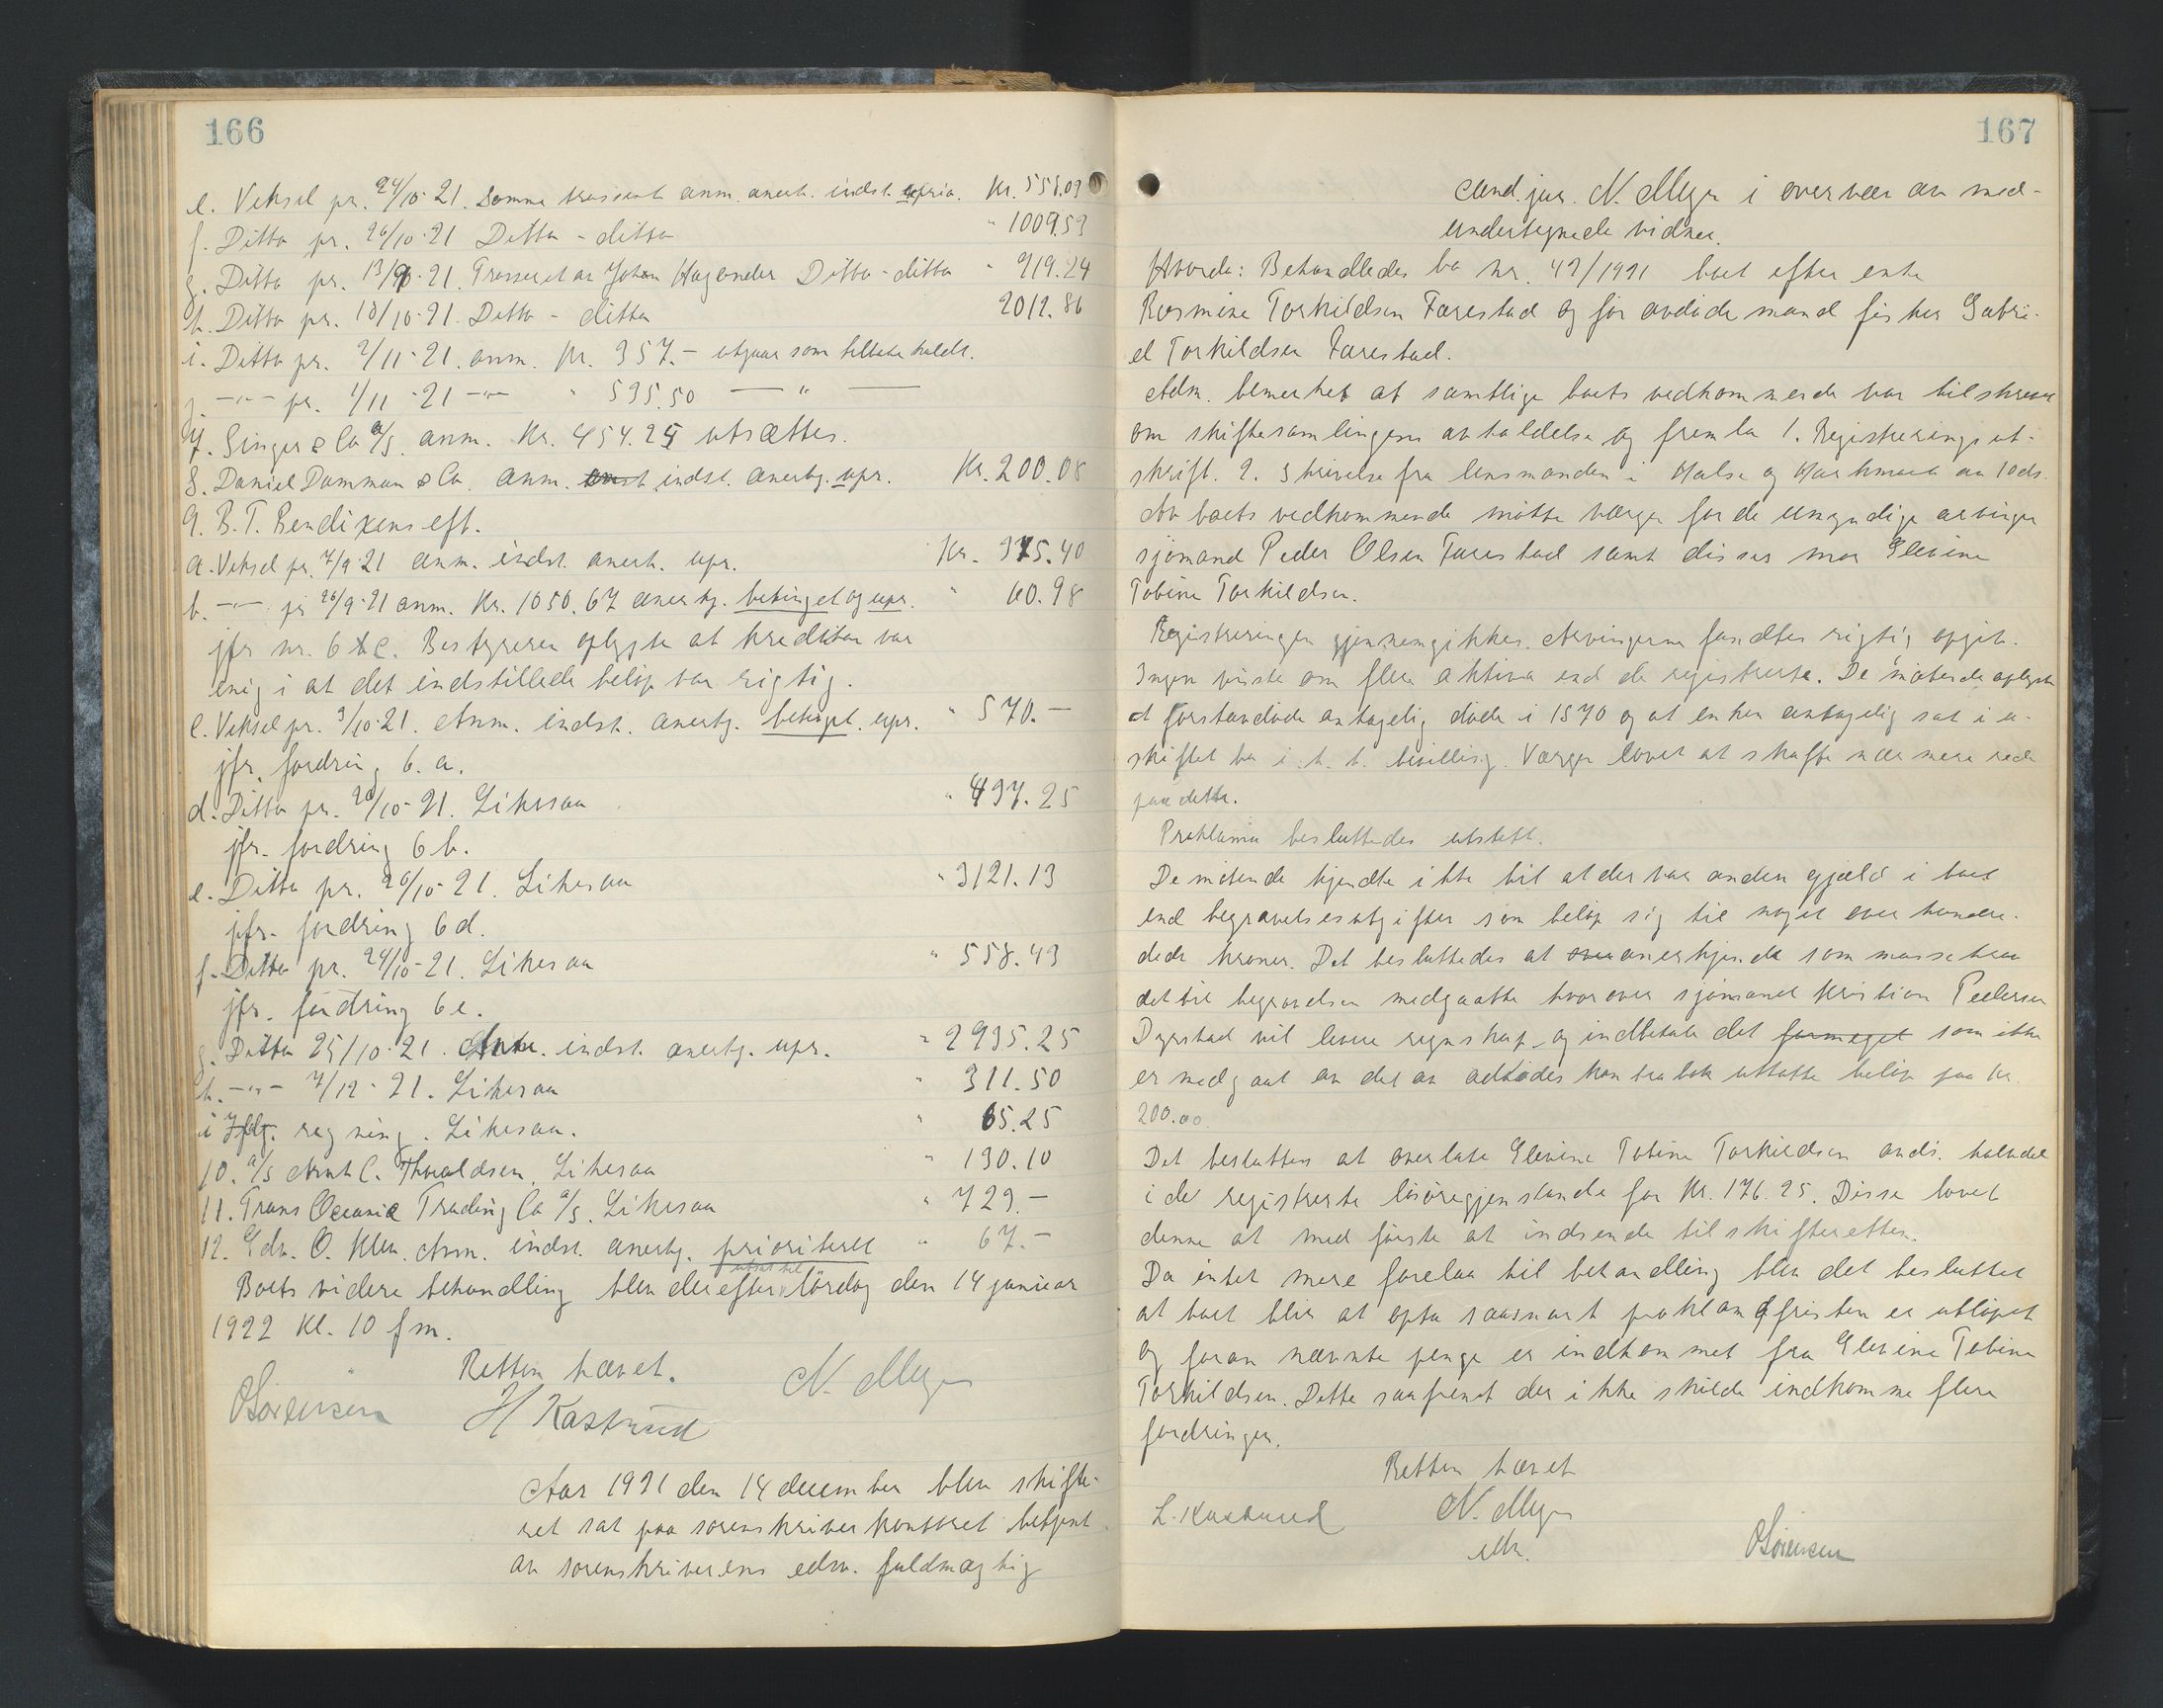 166
e. Veksel pr. 24/10-21. Samme trassent anm. anerk. indst. upria. Kr. 558.09
f. Ditto pr. 26/10-21 Ditto - ditto " 1009.59
g. Ditto pr. 13/10-21. Trasseret av Johan Hagander Ditto - ditto " 919.24
h. Ditto pr. 18/10-21. Ditto - ditto 2012.86
i. Ditto pr. 2/11-21. anm. Kr. 357.- utgaar som tilbakekaldt.
j. -"- pr. 1/11-21 -"- " 595.50 — " —
7. Singer & Co A/S. anm. Kr. 454.25 utsættes.
8. Daniel Damman & Co. anm. indst. anerkj. upr. Kr. 200.08
9. B. T. Bendixens eft.
a. Veksel pr. 7/9-21 anm. indst. anerk. upr. Kr. 375.40
b. -"- pr 26/9-21 anm. Kr. 1050.67 anerkj. betinget og upr. " 60.98
jfr nr. 6 c. Bestyreren oplyste at kreditor var
enig i at det indstillede beløp var rigtig.
c. Veksel pr. 3/10-21. Anm. indst. anerkj. betinget. upr. " 570.-
jfr. fordring 6. a.
d. Ditto pr. 20/10-21. Likesaa " 497.25
jfr. fordring 6 b.
e. Ditto pr. 26/10-21. Likesaa " 3121.13
jfr. fordring 6 d.
f. Ditto pr. 24/10-21. Likesaa " 558.43
jfr. fordring 6 e.
g. Ditto 25/10-21. Anm. indst. anerkj. upr. " 2935.25
h. -"- 7/12-21. Likesaa " 311.50
i Iflg. regning. Likesaa. " 65.25
10. A/S Arnt C. Thvaldsen. Likesaa " 130.10
11. Trans Oceanic Trading Co A/S. Likesaa " 729.-
12. Edv. O. Klev. Anm. indst. anerkj. prioriteret " 67.-
Boets videre behandling blev derefter utsat til lördag den 14 januar
1922 kl. 10 fm.
Retten hævet.
OSörensen H Kastrud N. Meyer
Aar 1921 den 14 december blev skifte-
ret sat paa sorenskriverkontoret betjent
av sorenskriverens edsv. fuldmægtig
167
cand. jur. N. Meyer i overvær av med-
undertegnede vidner.
Hvorda: Behandledes bo nr. 49/1921 boet efter enke
Rasmine Torkildsen Farestad og før avdøde mand fisker Gabri-
el Torkildsen Farestad.
Adm. bemerket at samtlige boets vedkommende var tilskrevet
om skiftesamlingens avholdelse og fremla 1. Registreringsut-
skrift. 2. Skrivelse fra lensmanden i Halse og Harkmark av 10 ds.
Av boets vedkommende møtte værgen for de umyndige arvinger
sjømand Peder Olsen Farestad samt disses mor Elevine
Tobine Torkildsen.
Registreringen gjennemgikkes. Arvingerne fandtes rigtig opgit.
Ingen visste om flere aktiva end de registrerte. De møtende oplyste
at førstavdøde antagelig døde i 1870 og at enken antagelig sat i u-
skiftet bo i. h. t. bevilling. Værgen lovet at skaffe nærmere rede
paa dette.
Proklama besluttedes utstedt.
De møtende kjendte ikke til at der var anden gjæld i boet
end begravelsesutgifter som beløp sig til noget over hundre-
dede kroner. Det besluttedes at anerkjende som massekrav
det til begravelsen medgaatte hvorover sjømand Kristian Pedersen
Dyrstad vil levere regnskap og indbetale det formeget som ikke
er medgaat av det av avdødes kontrabok uttatte beløp paa kr.
200.00.
Det besluttes at overlate Elevine Tobine Torkildsen avds. halvdel
i de registrerte løsøregjenstande for kr. 176.25. Disse lovet
denne at med første at indsende til skifteretten.
Da intet mere forelaa til behandling blev det besluttet
at boet blir at opta saasnart proklamafristen er utløpet
og foran nævnte penge er indkommet fra Elevine Tobine
Torkildsen. Dette saafremt der ikke skulde indkomme flere
fordringer.
Retten hævet
L. Kastrud N. Meyer OSörensen